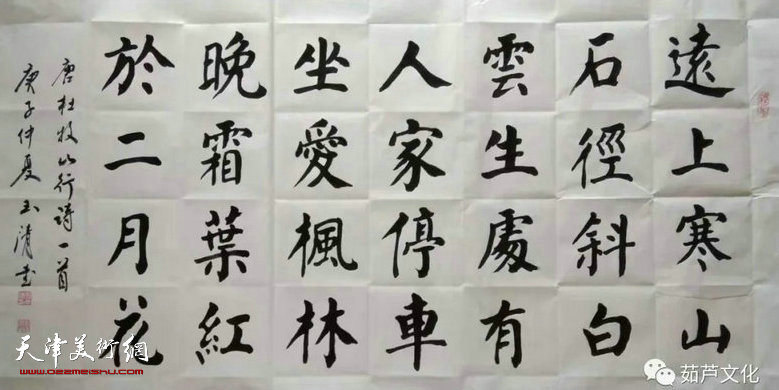 遠上寒山
石徑斜白
雲生處有
人家停車
坐愛楓林
晚霜葉紅
於二月花
唐杜牧山行詩一首
庚子仲夏玉清書
天津美術網
www.022meishu.com
茹芦文化